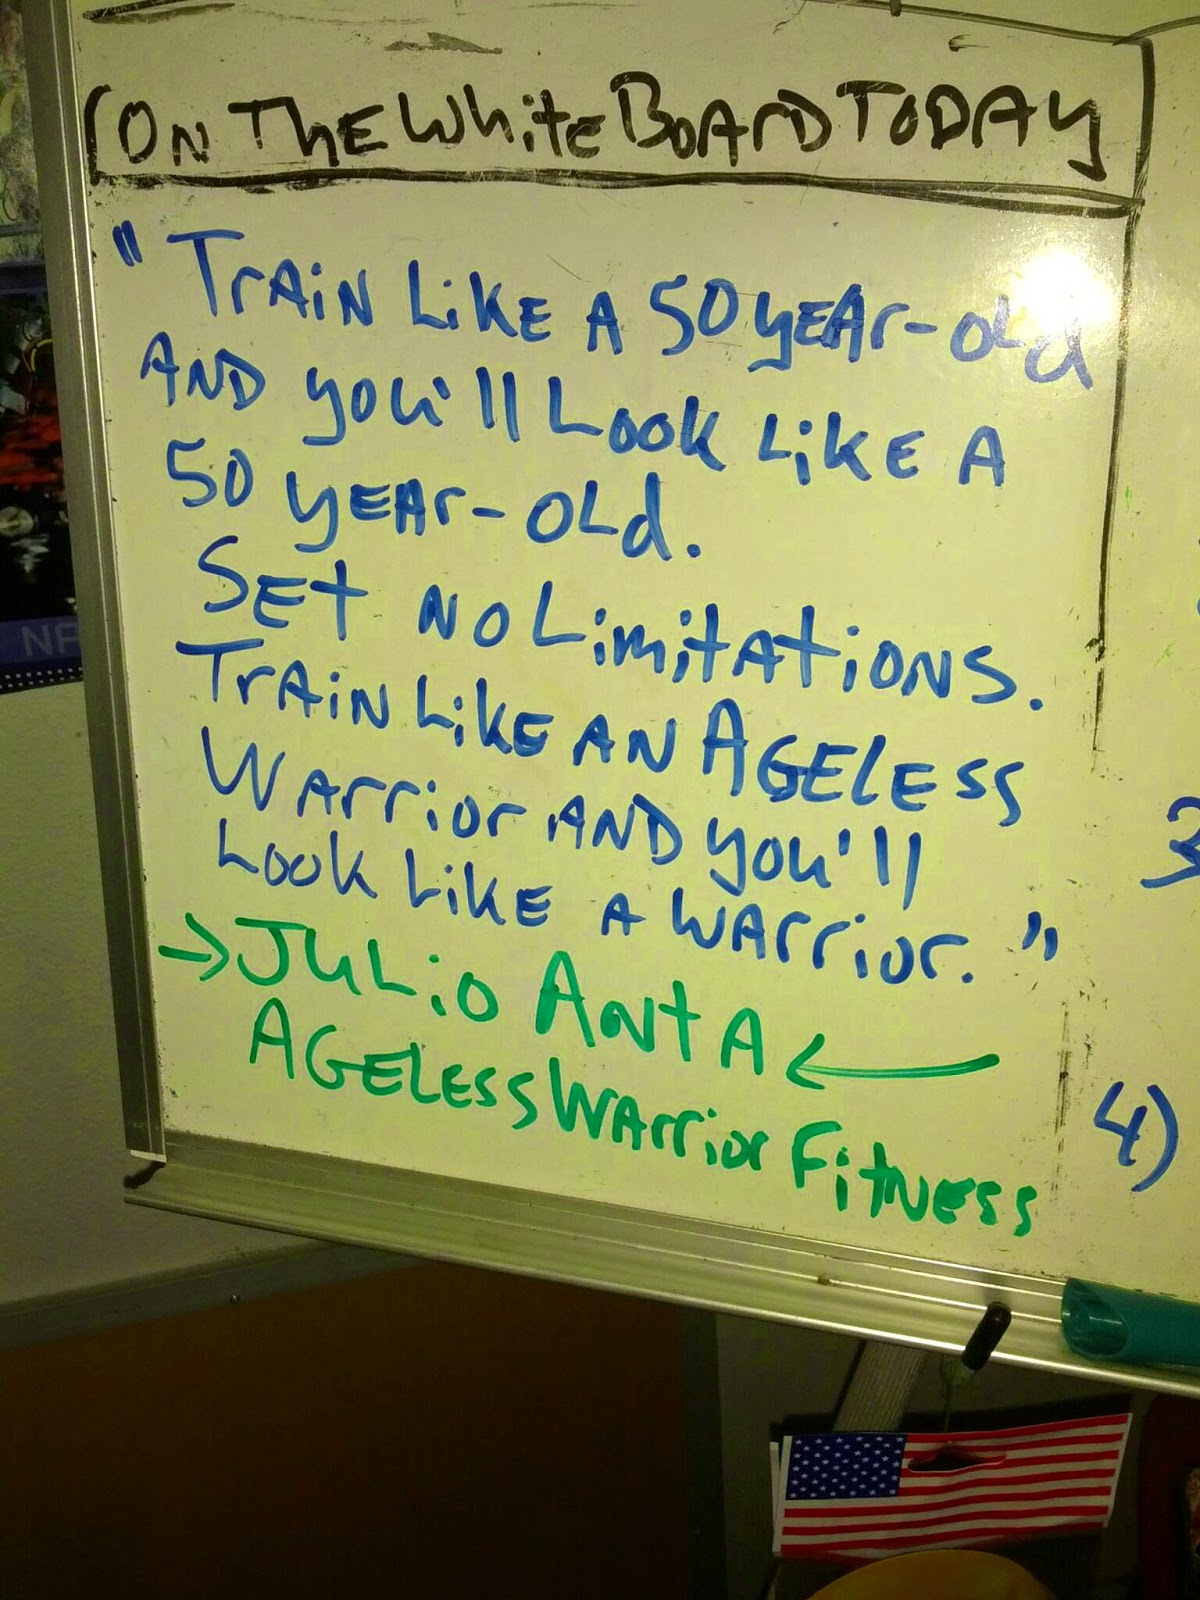 ON THE WHITE BOARD TODAY
"TRAIN LIKE A 50 YEAR-OLD
AND YOU'll LOOK LIKE A
50 YEAR-OLD.
SET NO LIMITATIONS.
TRAIN LIKE AN AGELESS
WARRIOR AND YOU'll
LOOK LIKE A WARRIOR."
→ JULIO ANTA ←
AGELESS WARRIOR FITNESS
3
4)
NA